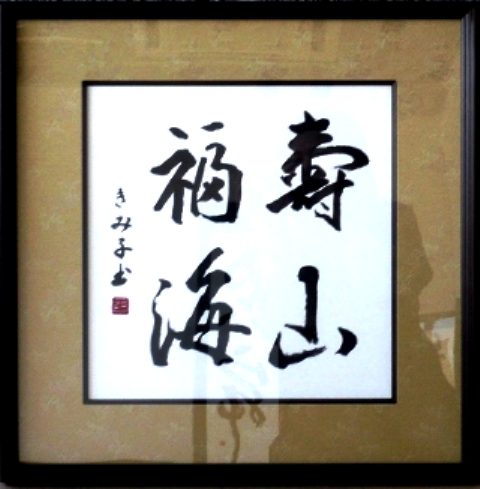 壽山
福海
きみ子書